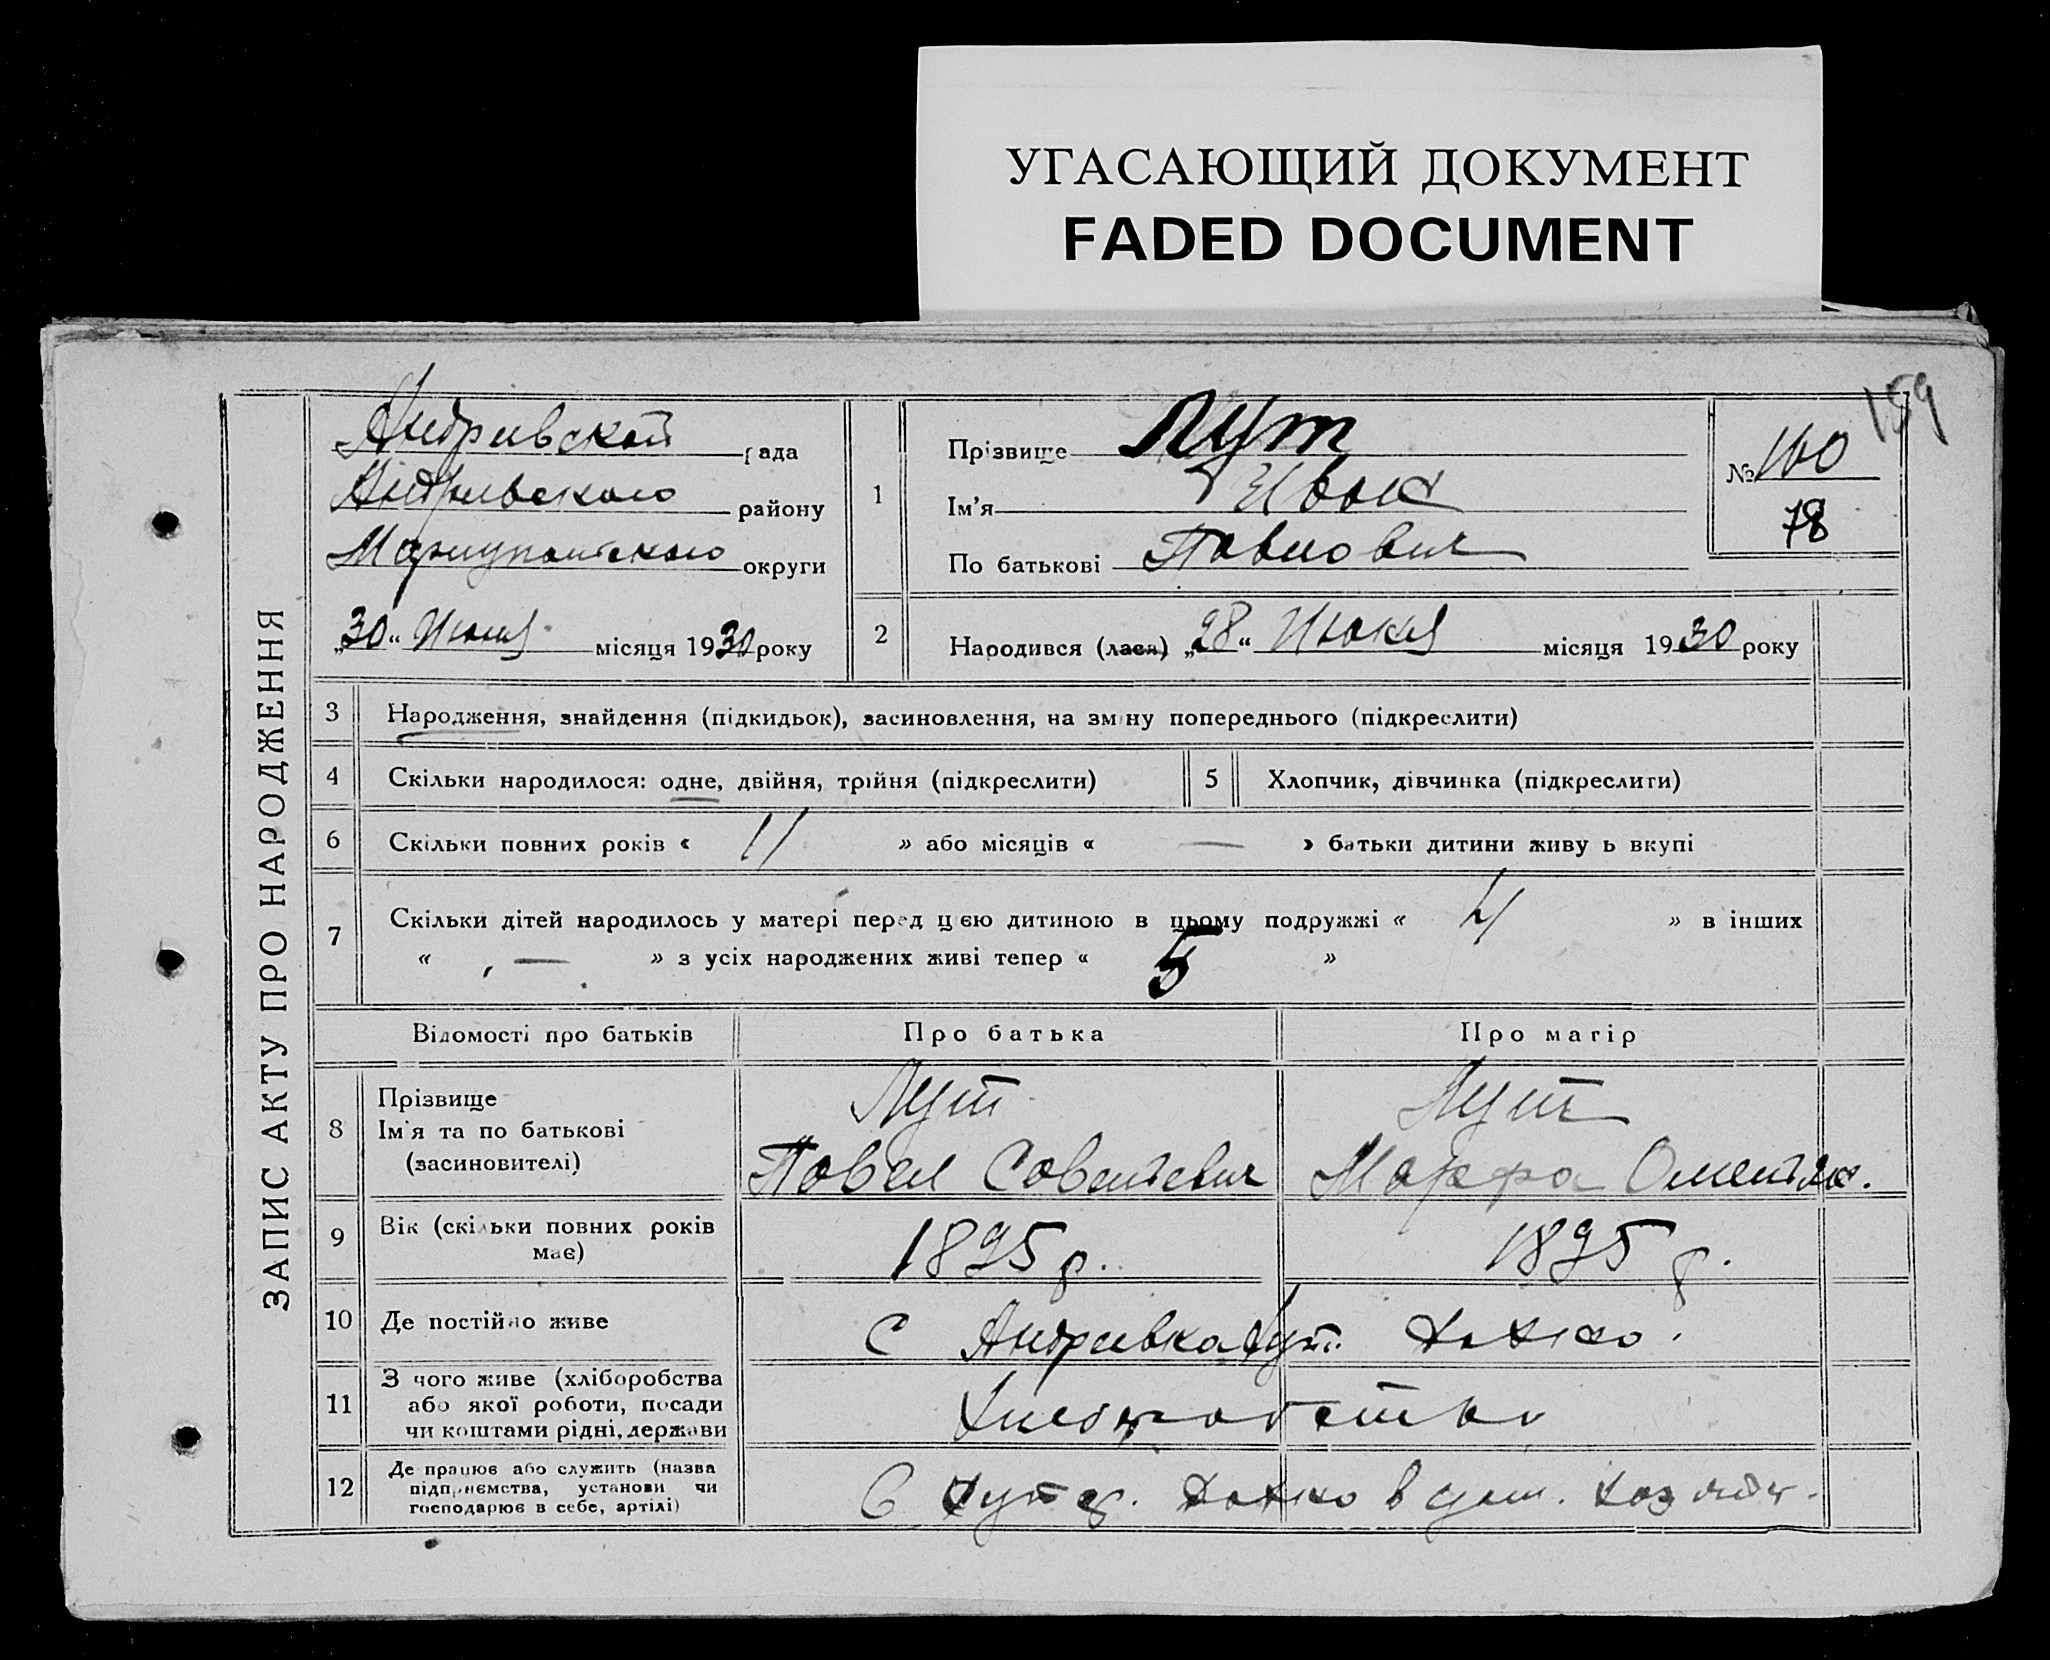 УГАСАЮЩИЙ ДОКУМЕНТ
FADED DOCUMENT
159
ЗАПИС АКТУ ПРО НАРОДЖЕННЯ
Андриевской рада
Андриевского району
округи
„30“ Июня місяця 1930 року
1
Прізвище Лут
Ім'я Иван
По батькові Павлович
№ 160
78
2 Народився (лася) „28“ Июня місяця 1930 року
3 Народження, знайдення (підкидьок), засиновлення, на зміну попереднього (підкреслити)
4 Скільки народилося: одне, двійня, трійня (підкреслити)
5 Хлопчик, дівчинка (підкреслити)
6 Скільки повних років « 11 » або місяців « — » батьки дитини живуть вкупі
7 Скільки дітей народилось у матері перед цією дитиною в цьому подружжі « 4 » в інших
« — » з усіх народжених живі тепер « 5 »
Відомості про батьків Про батька Про матір
8 Прізвище
Ім'я та по батькові
(засиновителі)
Лут
Павел Савельевич
Лут
Марфа
9 Вік (скільки повних років
має)
1895 р.
1895 р.
10 Де постійно живе
С Андриевка
11 З чого живе (хліборобства
або якої роботи, посади
чи коштами рідні, держави
12 Де працює або служить (назва
підприємства, установи чи
господарює в себе, артілі)